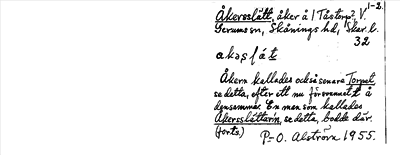 1-2.
Åkersslätt, åker å | Tåstorp?, V.
Gerums sn, Skånings hd, Skar. l.
32
Åkern kallades också senare Torpet,
se detta, efter ett nu försvunnet t å
densamma. En man som kallades
Åkersslättarn, se detta, bodde där.
(forts) P-O. Alström 1955.